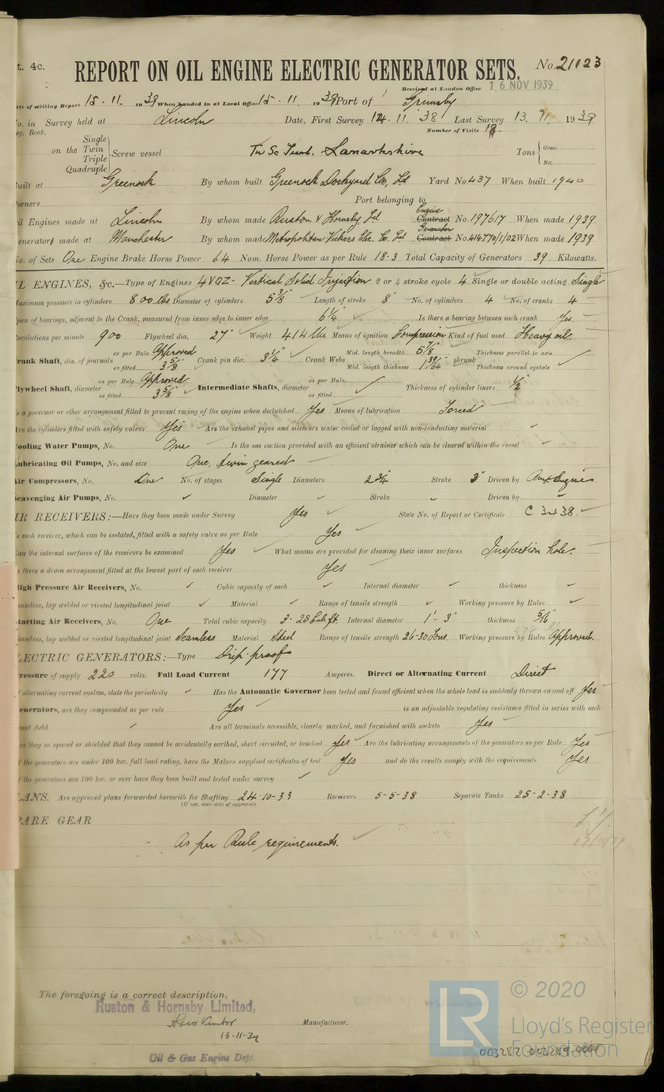 t. 4c.
REPORT ON OIL ENGINE ELECTRIC GENERATOR SETS.
No. 21023
Received at London Office 16 NOV 1939
ate of writing Report 15.11.1939 When handed in at Local Office 15.11.1939 Port of Grimsby
No. in Survey held at Lincoln Date, First Survey 14.11.38 Last Survey 13.11.1939
eg. Book.
Number of Visits 18
on the Single Twin Triple Quadruple Screw vessel Tw Sc Lanarkshire Tons Gross Net
uilt at Greenock By whom built Greenock Dockyard Co, Ld Yard No. 437 When built 1940
wners Port belonging to
il Engines made at Lincoln By whom made Ruston & Hornsby Ld Engine Contract No. 197617 When made 1939
enerators made at Manchester By whom made Metropolitan Vickers Elec. Co. Ld Generator Contract No. 414770/1/02 When made 1939
o. of Sets One Engine Brake Horse Power 64 Nom. Horse Power as per Rule 18.3 Total Capacity of Generators 39 Kilowatts.
IL ENGINES, &c.—Type of Engines 4VQZ - Vertical Solid Injection 2 or 4 stroke cycle 4 Single or double acting Single
aximum pressure in cylinders 800 lbs Diameter of cylinders 5 3/8" Length of stroke 8" No. of cylinders 4 No. of cranks 4
pan of bearings, adjacent to the Crank, measured from inner edge to inner edge 6 1/4" Is there a bearing between each crank Yes.
evolutions per minute 900 Flywheel dia. 27" Weight 414 lbs Means of ignition Compression Kind of fuel used Heavy oil.
rank Shaft, dia. of journals as per Rule Approved as fitted 3 5/8 Crank pin dia. 3 1/4" Crank Webs Mid. length breadth 5 7/8" Mid. length thickness shrunk Thickness parallel to axis Thickness around eyehole
lywheel Shaft, diameter as per Rule Approved as fitted 3 5/8 Intermediate Shafts, diameter as per Rule as fitted Thickness of cylinder liners 1/2"
s a governor or other arrangement fitted to prevent racing of the engine when declutched Yes Means of lubrication Forced
re the cylinders fitted with safety valves Yes Are the exhaust pipes and silencers water cooled or lagged with non-conducting material
ooling Water Pumps, No. One Is the sea suction provided with an efficient strainer which can be cleared within the vessel
ubricating Oil Pumps, No. and size One, twin geared
ir Compressors, No. One No. of stages Single Diameters 2 3/4 Stroke 3" Driven by Aux Engine
cavenging Air Pumps, No. Diameter Stroke Driven by
IR RECEIVERS:—Have they been made under Survey Yes State No. of Report or Certificate C 3438
s each receiver, which can be isolated, fitted with a safety valve as per Rule Yes
an the internal surfaces of the receivers be examined Yes What means are provided for cleaning their inner surfaces Inspection hole.
s there a drain arrangement fitted at the lowest part of each receiver Yes
igh Pressure Air Receivers, No. Cubic capacity of each Internal diameter thickness
eamless, lap welded or riveted longitudinal joint Material Range of tensile strength Working pressure by Rules
tarting Air Receivers, No. One Total cubic capacity 3.28 Cub ft Internal diameter 1'-3" thickness 5/16
eamless, lap welded or riveted longitudinal joint Seamless Material Steel Range of tensile strength 26-30 Tons Working pressure by Rules Approved.
LECTRIC GENERATORS:—Type Drip-proof
ressure of supply 220 volts. Full Load Current 177 Amperes. Direct or Alternating Current Direct
f alternating current system, state the periodicity Has the Automatic Governor been tested and found efficient when the whole load is suddenly thrown on and off Yes
enerators, are they compounded as per rule Yes is an adjustable regulating resistance fitted in series with each
unt field Are all terminals accessible, clearly marked, and furnished with sockets Yes
re they so spaced or shielded that they cannot be accidentally earthed, short circuited, or touched Yes Are the lubricating arrangements of the generators as per Rule Yes
f the generators are under 100 kw. full load rating, have the Makers supplied certificates of test Yes and do the results comply with the requirements Yes
f the generators are 100 kw. or over have they been built and tested under survey
LANS. Are approved plans forwarded herewith for Shafting 24-10-33 Receivers 5-5-38 Separate Tanks 25-2-38
(If not, state date of approval)
PARE GEAR
As per Rule requirements.
The foregoing is a correct description,
Ruston & Hornsby Limited,
Manufacturer.
13-11-39
Oil & Gas Engine Dept.
LR © 2020
Lloyd's Register
Foundation
003282